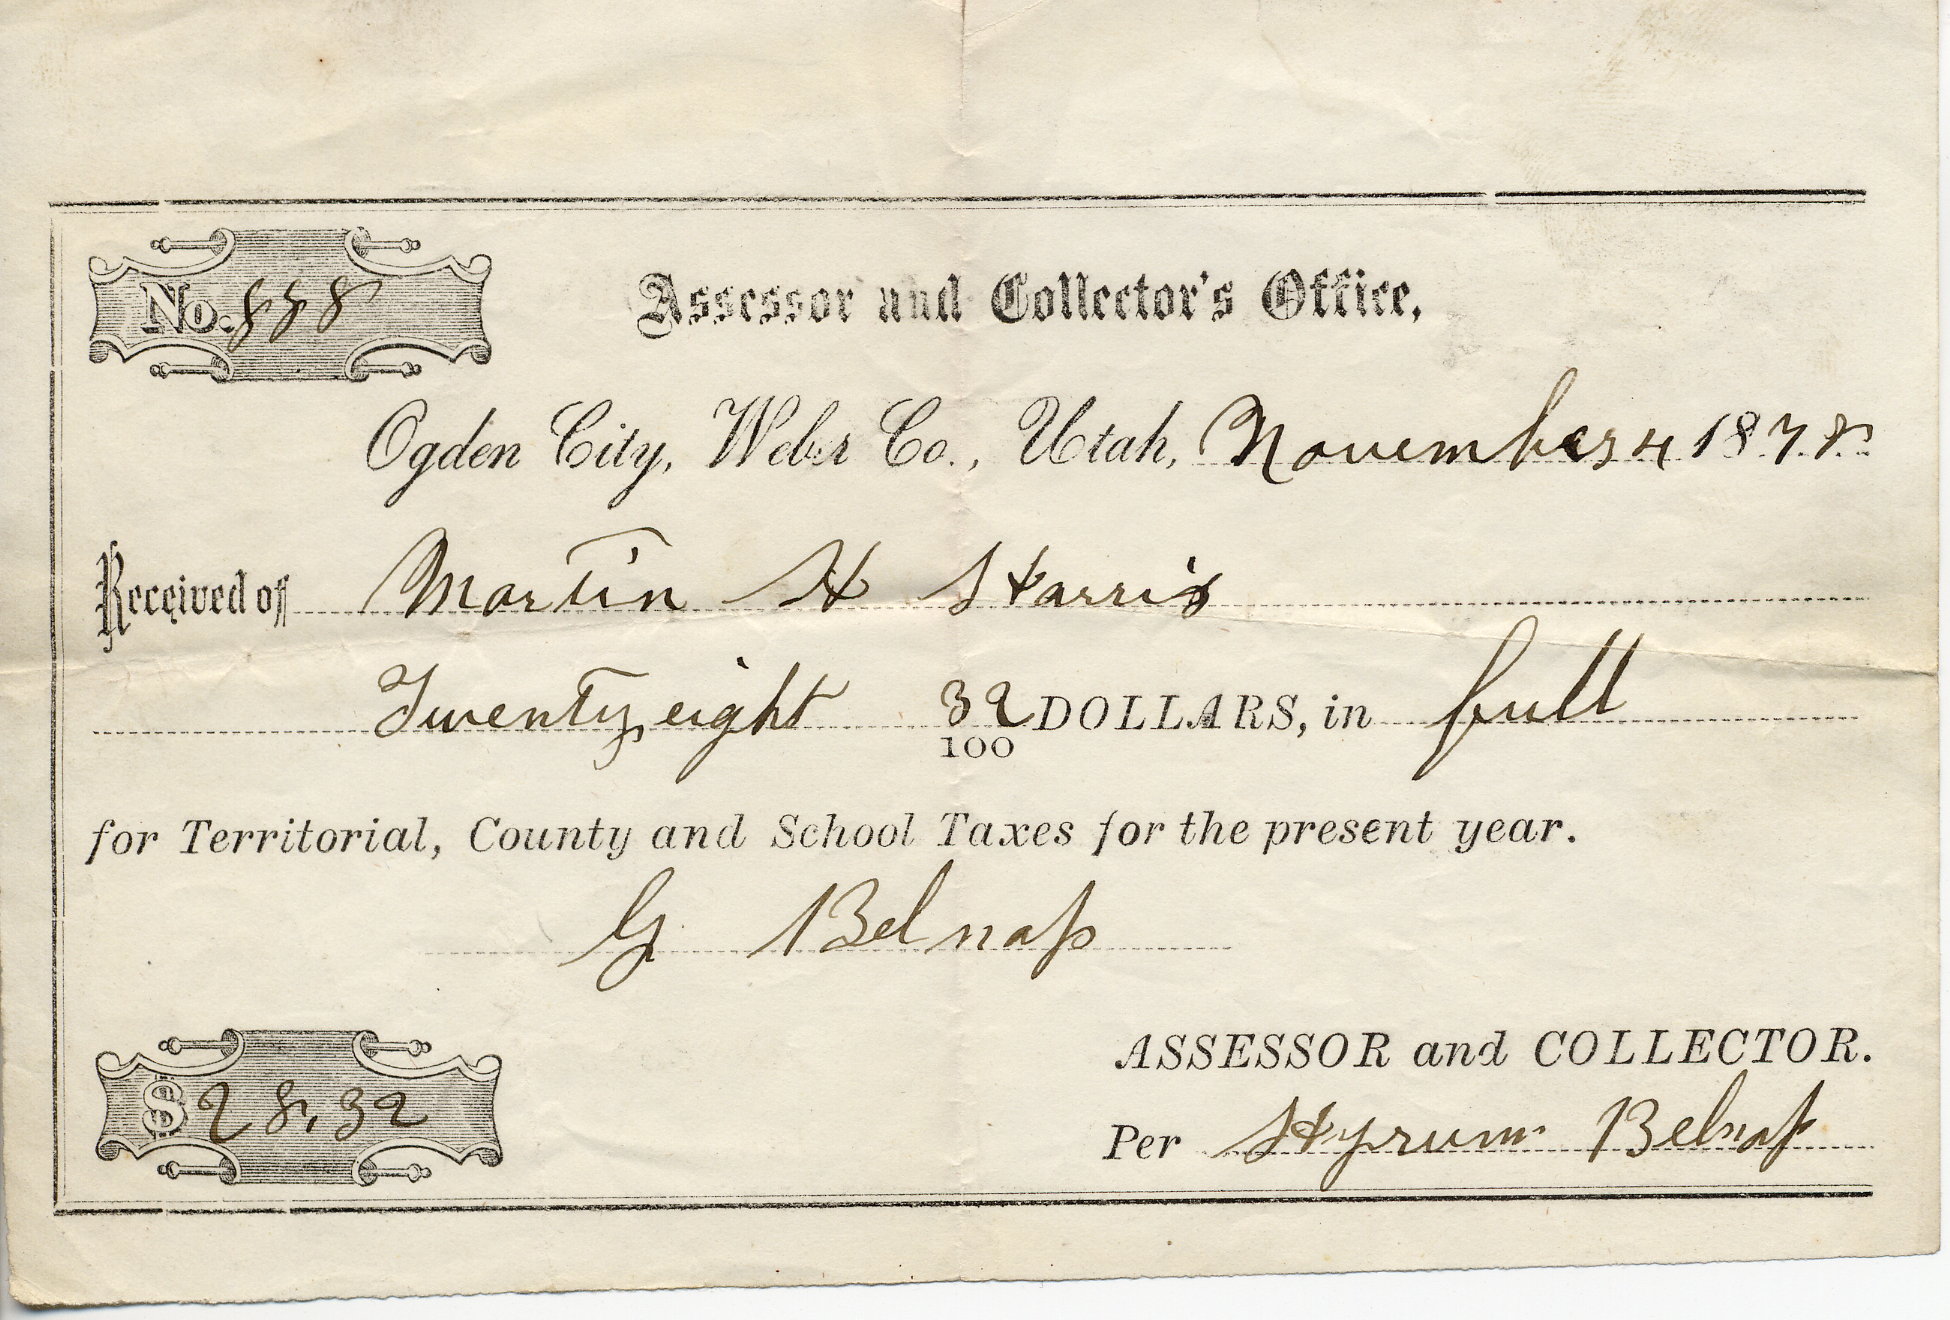 No. 888
Assessor and Collector's Office,
Ogden City, Weber Co., Utah, November 4 1878
Received of Martin H Harris
Twenty eight 32/100 DOLLARS, in full
for Territorial, County and School Taxes for the present year.
G Belnap
ASSESSOR and COLLECTOR.
$28.32
Per Hyrum Belnap